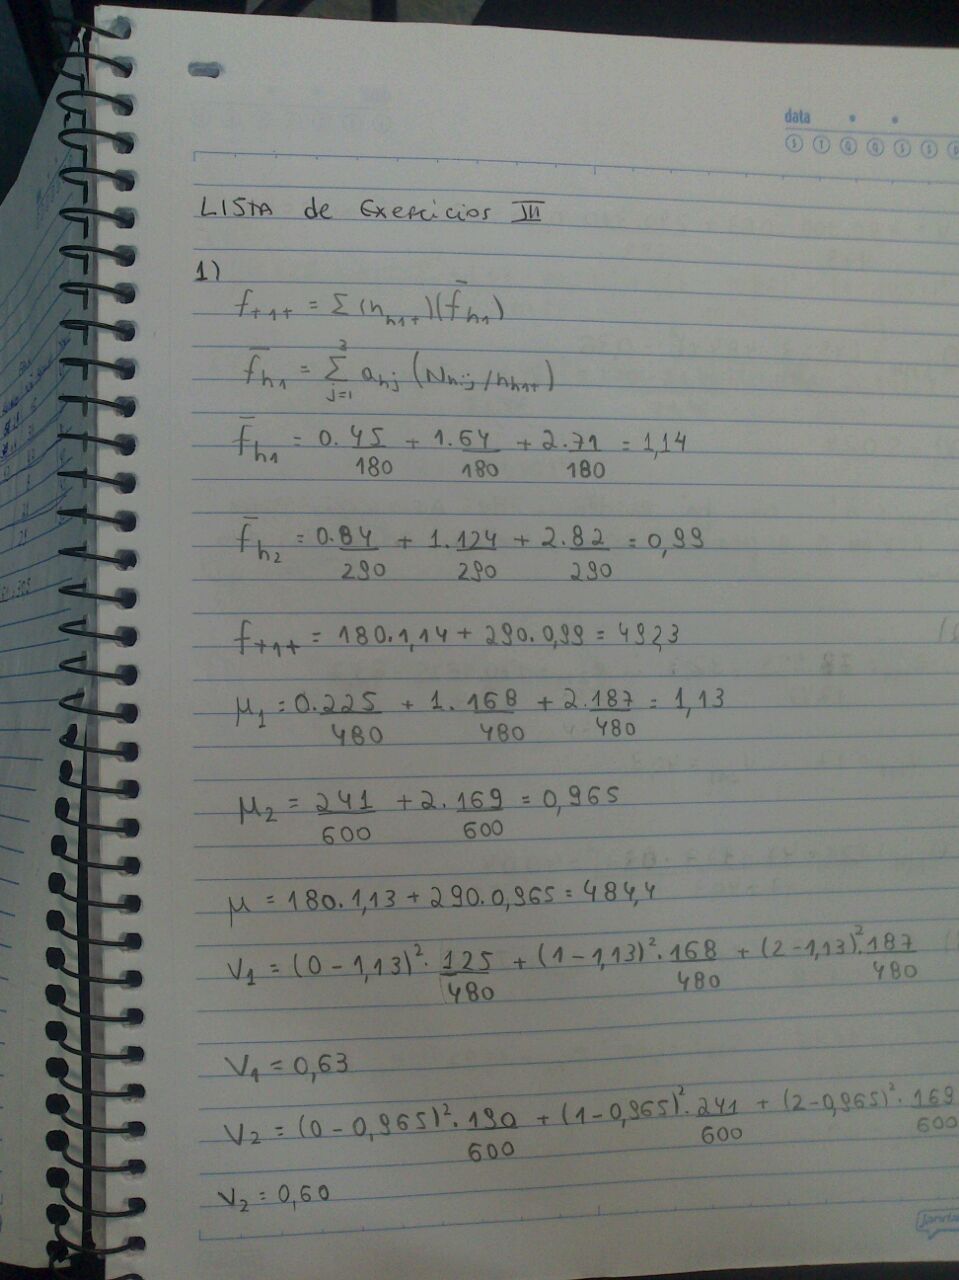 data
S T Q Q S S D
LISTA de Exercicios III
1)
f₊₁₊ = Σ (n_h1+)(f̄_h1)
f̄_h1 = Σ_{j=1}^{3} a_hj (N_hij / n_h1+)
f̄_h1 = 0.45/180 + 1.64/180 + 2.71/180 = 1,14
f̄_h2 = 0.84/290 + 1.124/290 + 2.82/290 = 0,99
f₊₁₊ = 180.1,14 + 290.0,99 = 492,3
μ₁ = 0.225/480 + 1.168/480 + 2.187/480 = 1,13
μ₂ = 241/600 + 2.169/600 = 0,965
μ = 180.1,13 + 290.0,965 = 484,4
V₁ = (0 - 1,13)².125/480 + (1 - 1,13)².168/480 + (2 - 1,13)².187/480
V₁ = 0,63
V₂ = (0 - 0,965)².190/600 + (1 - 0,965)².241/600 + (2 - 0,965)².169/600
V₂ = 0,60